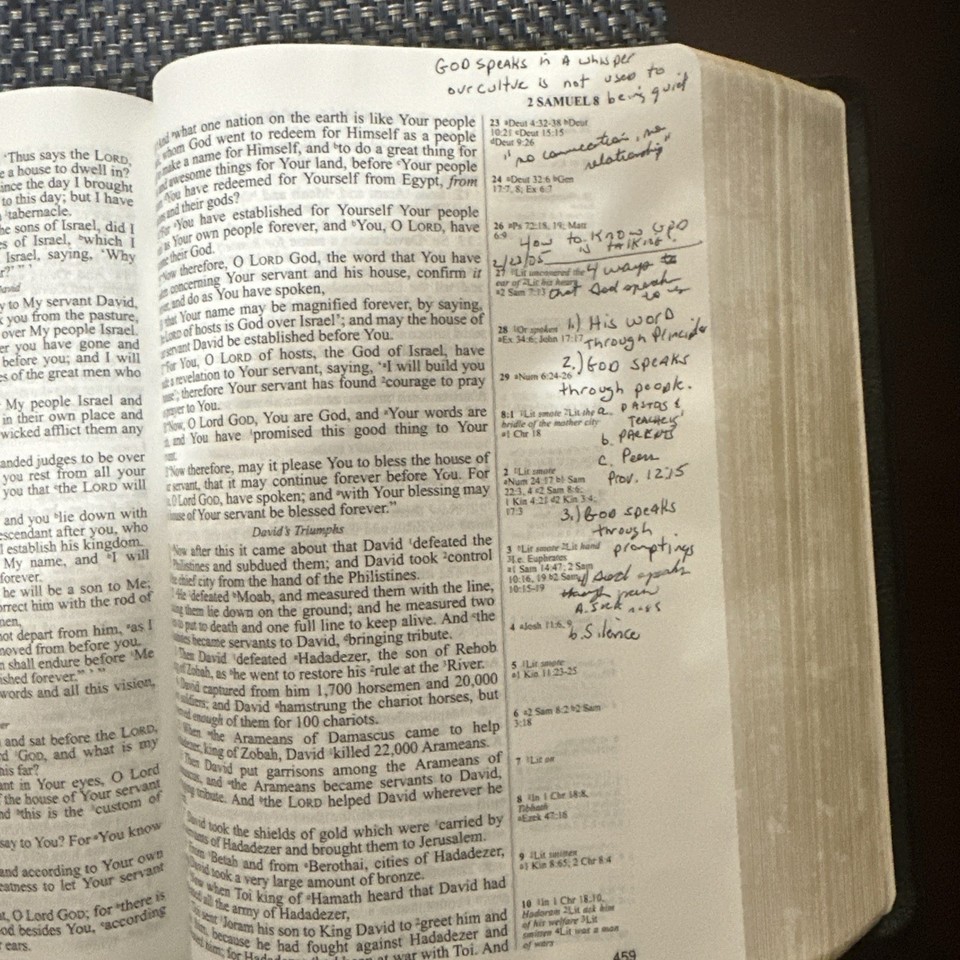 GOD SPEAKS in A whisper
our cultue is not used to
being quiet
2 SAMUEL 8
"no connection, no
relationship"
How to KNOW GOD
is talking?
2/23/05
4 ways to
that God speaks
to us
1.) His word
through Principle
2.) GOD SPEAKS
through people.
a. PASTORS &
TEACHERS
b. PARENTS
c. Peers
Prov. 12:15
3.) GOD SPEAKS
through
promptings
4) God speaks
through pain
A. Sickness
b. Silence
"Thus says the LORD,
e a house to dwell in?
ince the day I brought
to this day; but I have
tabernacle.
he sons of Israel, did I
es of Israel, which I
Israel, saying, "Why
y to My servant David,
k you from the pasture,
over My people Israel.
er you have gone and
before you; and I will
es of the great men who
My people Israel and
in their own place and
wicked afflict them any
anded judges to be over
you rest from all your
you that the LORD will
and you lie down with
escendant after you, who
I establish his kingdom.
My name, and I will
forever.
he will be a son to Me;
orrect him with the rod of
men,
not depart from him, as I
moved from before you.
n shall endure before Me
ished forever."'"
words and all this vision,
and sat before the LORD,
GOD, and what is my
his far?
ant in Your eyes, O Lord
the house of Your servant
nd this is the custom of
say to You? For You know
and according to Your own
eatness to let Your servant
t, O Lord GOD; for there is
od besides You, according
r ears.
And what one nation on the earth is like Your people
whom God went to redeem for Himself as a people
make a name for Himself, and to do a great thing for
and awesome things for Your land, before Your people
You have redeemed for Yourself from Egypt, from
and their gods?
For You have established for Yourself Your people
as Your own people forever, and You, O LORD, have
their God.
Now therefore, O LORD God, the word that You have
concerning Your servant and his house, confirm it
and do as You have spoken,
that Your name may be magnified forever, by saying,
LORD of hosts is God over Israel'; and may the house of
servant David be established before You.
For You, O LORD of hosts, the God of Israel, have
a revelation to Your servant, saying, 'I will build you
; therefore Your servant has found courage to pray
prayer to You.
Now, O Lord GOD, You are God, and Your words are
and You have promised this good thing to Your
Now therefore, may it please You to bless the house of
servant, that it may continue forever before You. For
O Lord GOD, have spoken; and with Your blessing may
house of Your servant be blessed forever."
David's Triumphs
Now after this it came about that David defeated the
Philistines and subdued them; and David took control
chief city from the hand of the Philistines.
He defeated Moab, and measured them with the line,
ing them lie down on the ground; and he measured two
to put to death and one full line to keep alive. And the
became servants to David, bringing tribute.
Then David defeated Hadadezer, the son of Rehob
of Zobah, as he went to restore his rule at the River.
David captured from him 1,700 horsemen and 20,000
soldiers; and David hamstrung the chariot horses, but
enough of them for 100 chariots.
When the Arameans of Damascus came to help
king of Zobah, David killed 22,000 Arameans.
Then David put garrisons among the Arameans of
and the Arameans became servants to David,
tribute. And the LORD helped David wherever he
David took the shields of gold which were carried by
of Hadadezer and brought them to Jerusalem.
from Betah and from Berothai, cities of Hadadezer,
David took a very large amount of bronze.
Now when Toi king of Hamath heard that David had
all the army of Hadadezer,
sent Joram his son to King David to greet him and
him, because he had fought against Hadadezer and
him; for Hadad at war with Toi. And
23 Deut 4:32-38 Deut
10:21 Deut 15:15
Deut 9:26
24 Deut 32:6 Gen
17:7, 8; Ex 6:7
26 Ps 72:18, 19; Matt
6:9
27 Lit uncovered the
ear of Lit his heart
2 Sam 7:13
28 Or spoken
Ex 34:6; John 17:17
29 Num 6:24-26
8:1 Lit smote Lit the
bridle of the mother city
1 Chr 18
2 Lit smote
Num 24:17 1 Sam
22:3, 4 2 Sam 8:6;
1 Kin 4:21 2 Kin 3:4;
17:3
3 Lit smote Lit hand
I.e. Euphrates
1 Sam 14:47; 2 Sam
10:16, 19 2 Sam
10:15-19
4 Josh 11:6, 9
5 Lit smote
1 Kin 11:23-25
6 2 Sam 8:2 2 Sam
3:18
7 Lit on
8 In 1 Chr 18:8,
Tibhath
Ezek 47:16
9 Lit smitten
1 Kin 8:65; 2 Chr 8:4
10 In 1 Chr 18:10,
Hadoram Lit ask him
of his welfare Lit
smitten Lit was a man
of wars
459